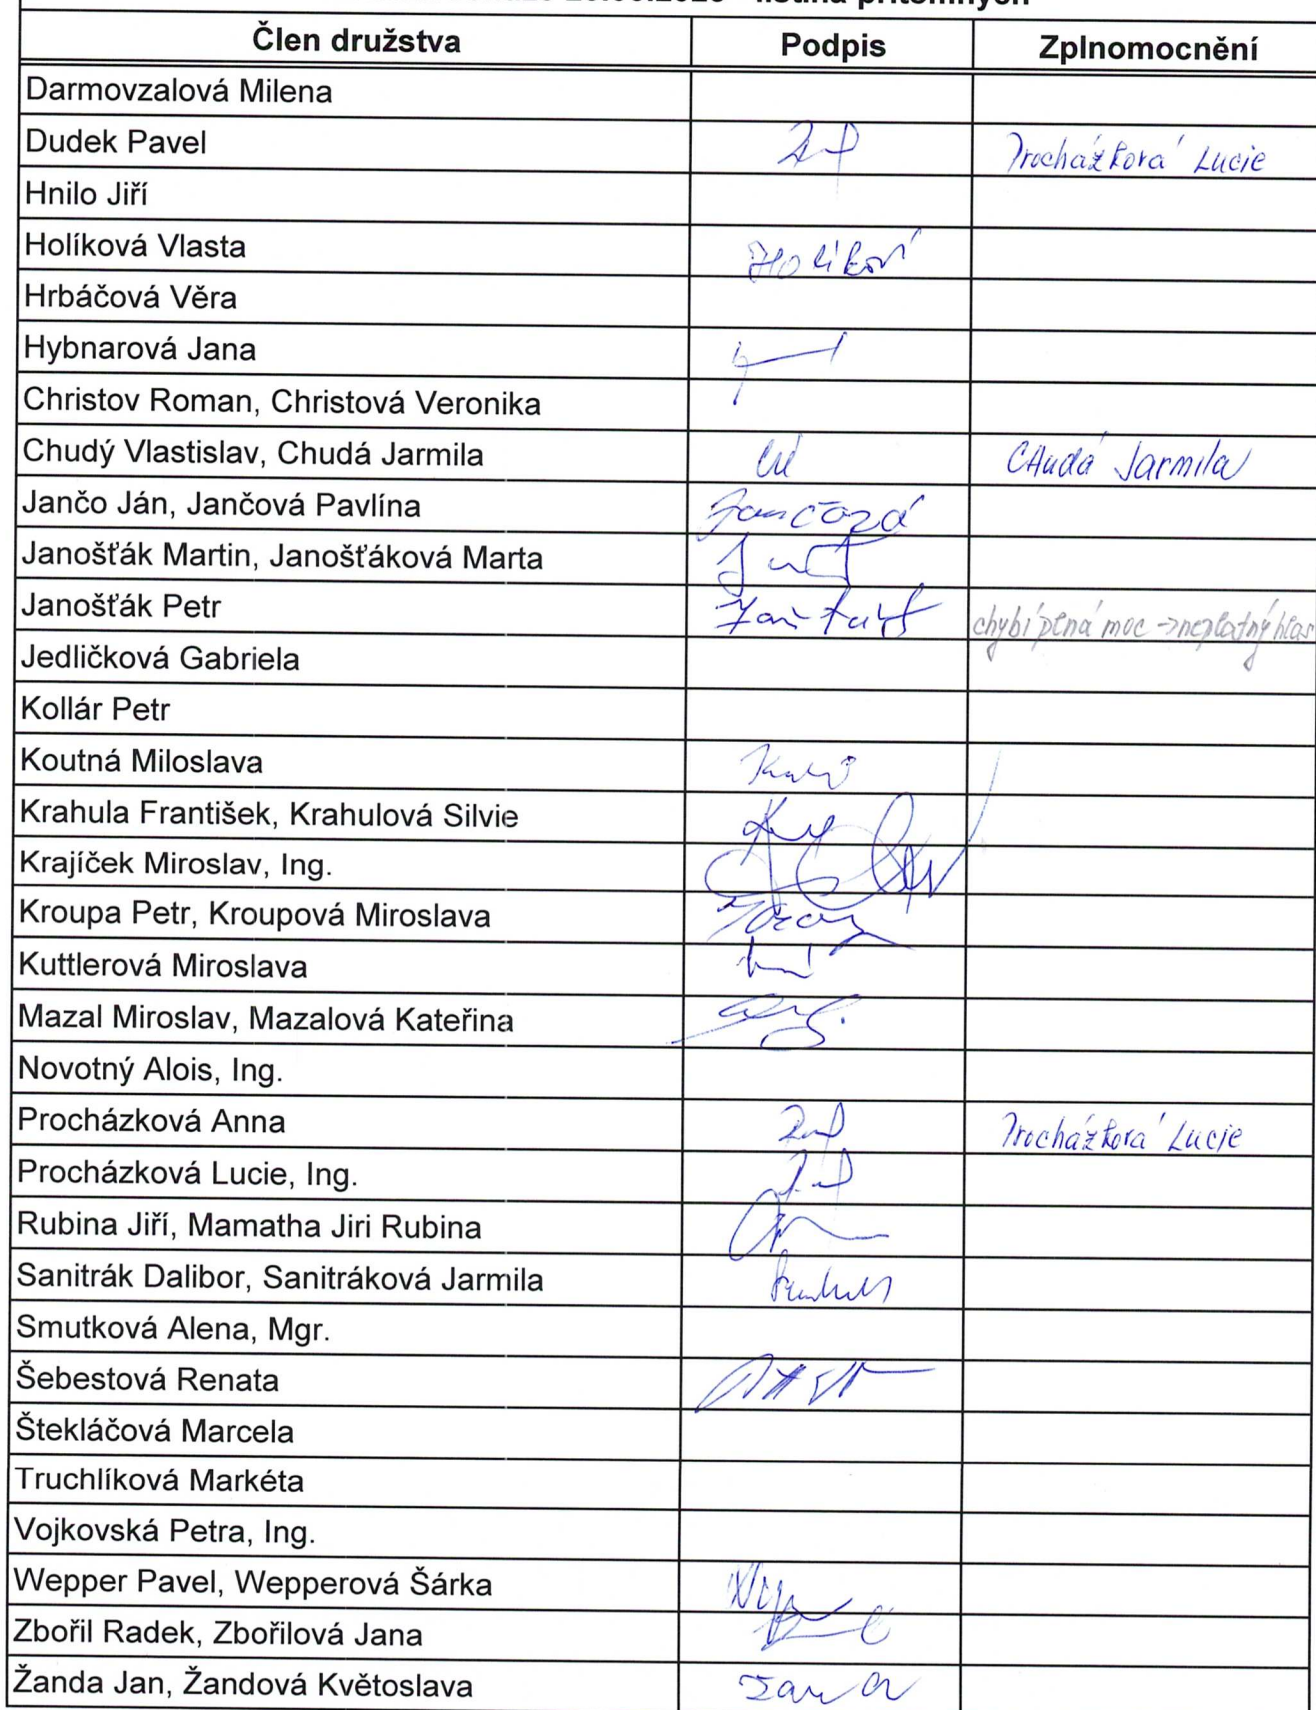 listina přítomných
Člen družstva Podpis Zplnomocnění
Darmovzalová Milena
Dudek Pavel Procházková Lucie
Hnilo Jiří
Holíková Vlasta Holíková
Hrbáčová Věra
Hybnarová Jana
Christov Roman, Christová Veronika
Chudý Vlastislav, Chudá Jarmila Chudá Jarmila
Jančo Ján, Jančová Pavlína Jančová
Janošťák Martin, Janošťáková Marta
Janošťák Petr chybí plná moc -> neplatný hlas
Jedličková Gabriela
Kollár Petr
Koutná Miloslava
Krahula František, Krahulová Silvie
Krajíček Miroslav, Ing.
Kroupa Petr, Kroupová Miroslava
Kuttlerová Miroslava
Mazal Miroslav, Mazalová Kateřina
Novotný Alois, Ing.
Procházková Anna Procházková Lucie
Procházková Lucie, Ing.
Rubina Jiří, Mamatha Jiri Rubina
Sanitrák Dalibor, Sanitráková Jarmila
Smutková Alena, Mgr.
Šebestová Renata
Štekláčová Marcela
Truchlíková Markéta
Vojkovská Petra, Ing.
Wepper Pavel, Wepperová Šárka
Zbořil Radek, Zbořilová Jana
Žanda Jan, Žandová Květoslava